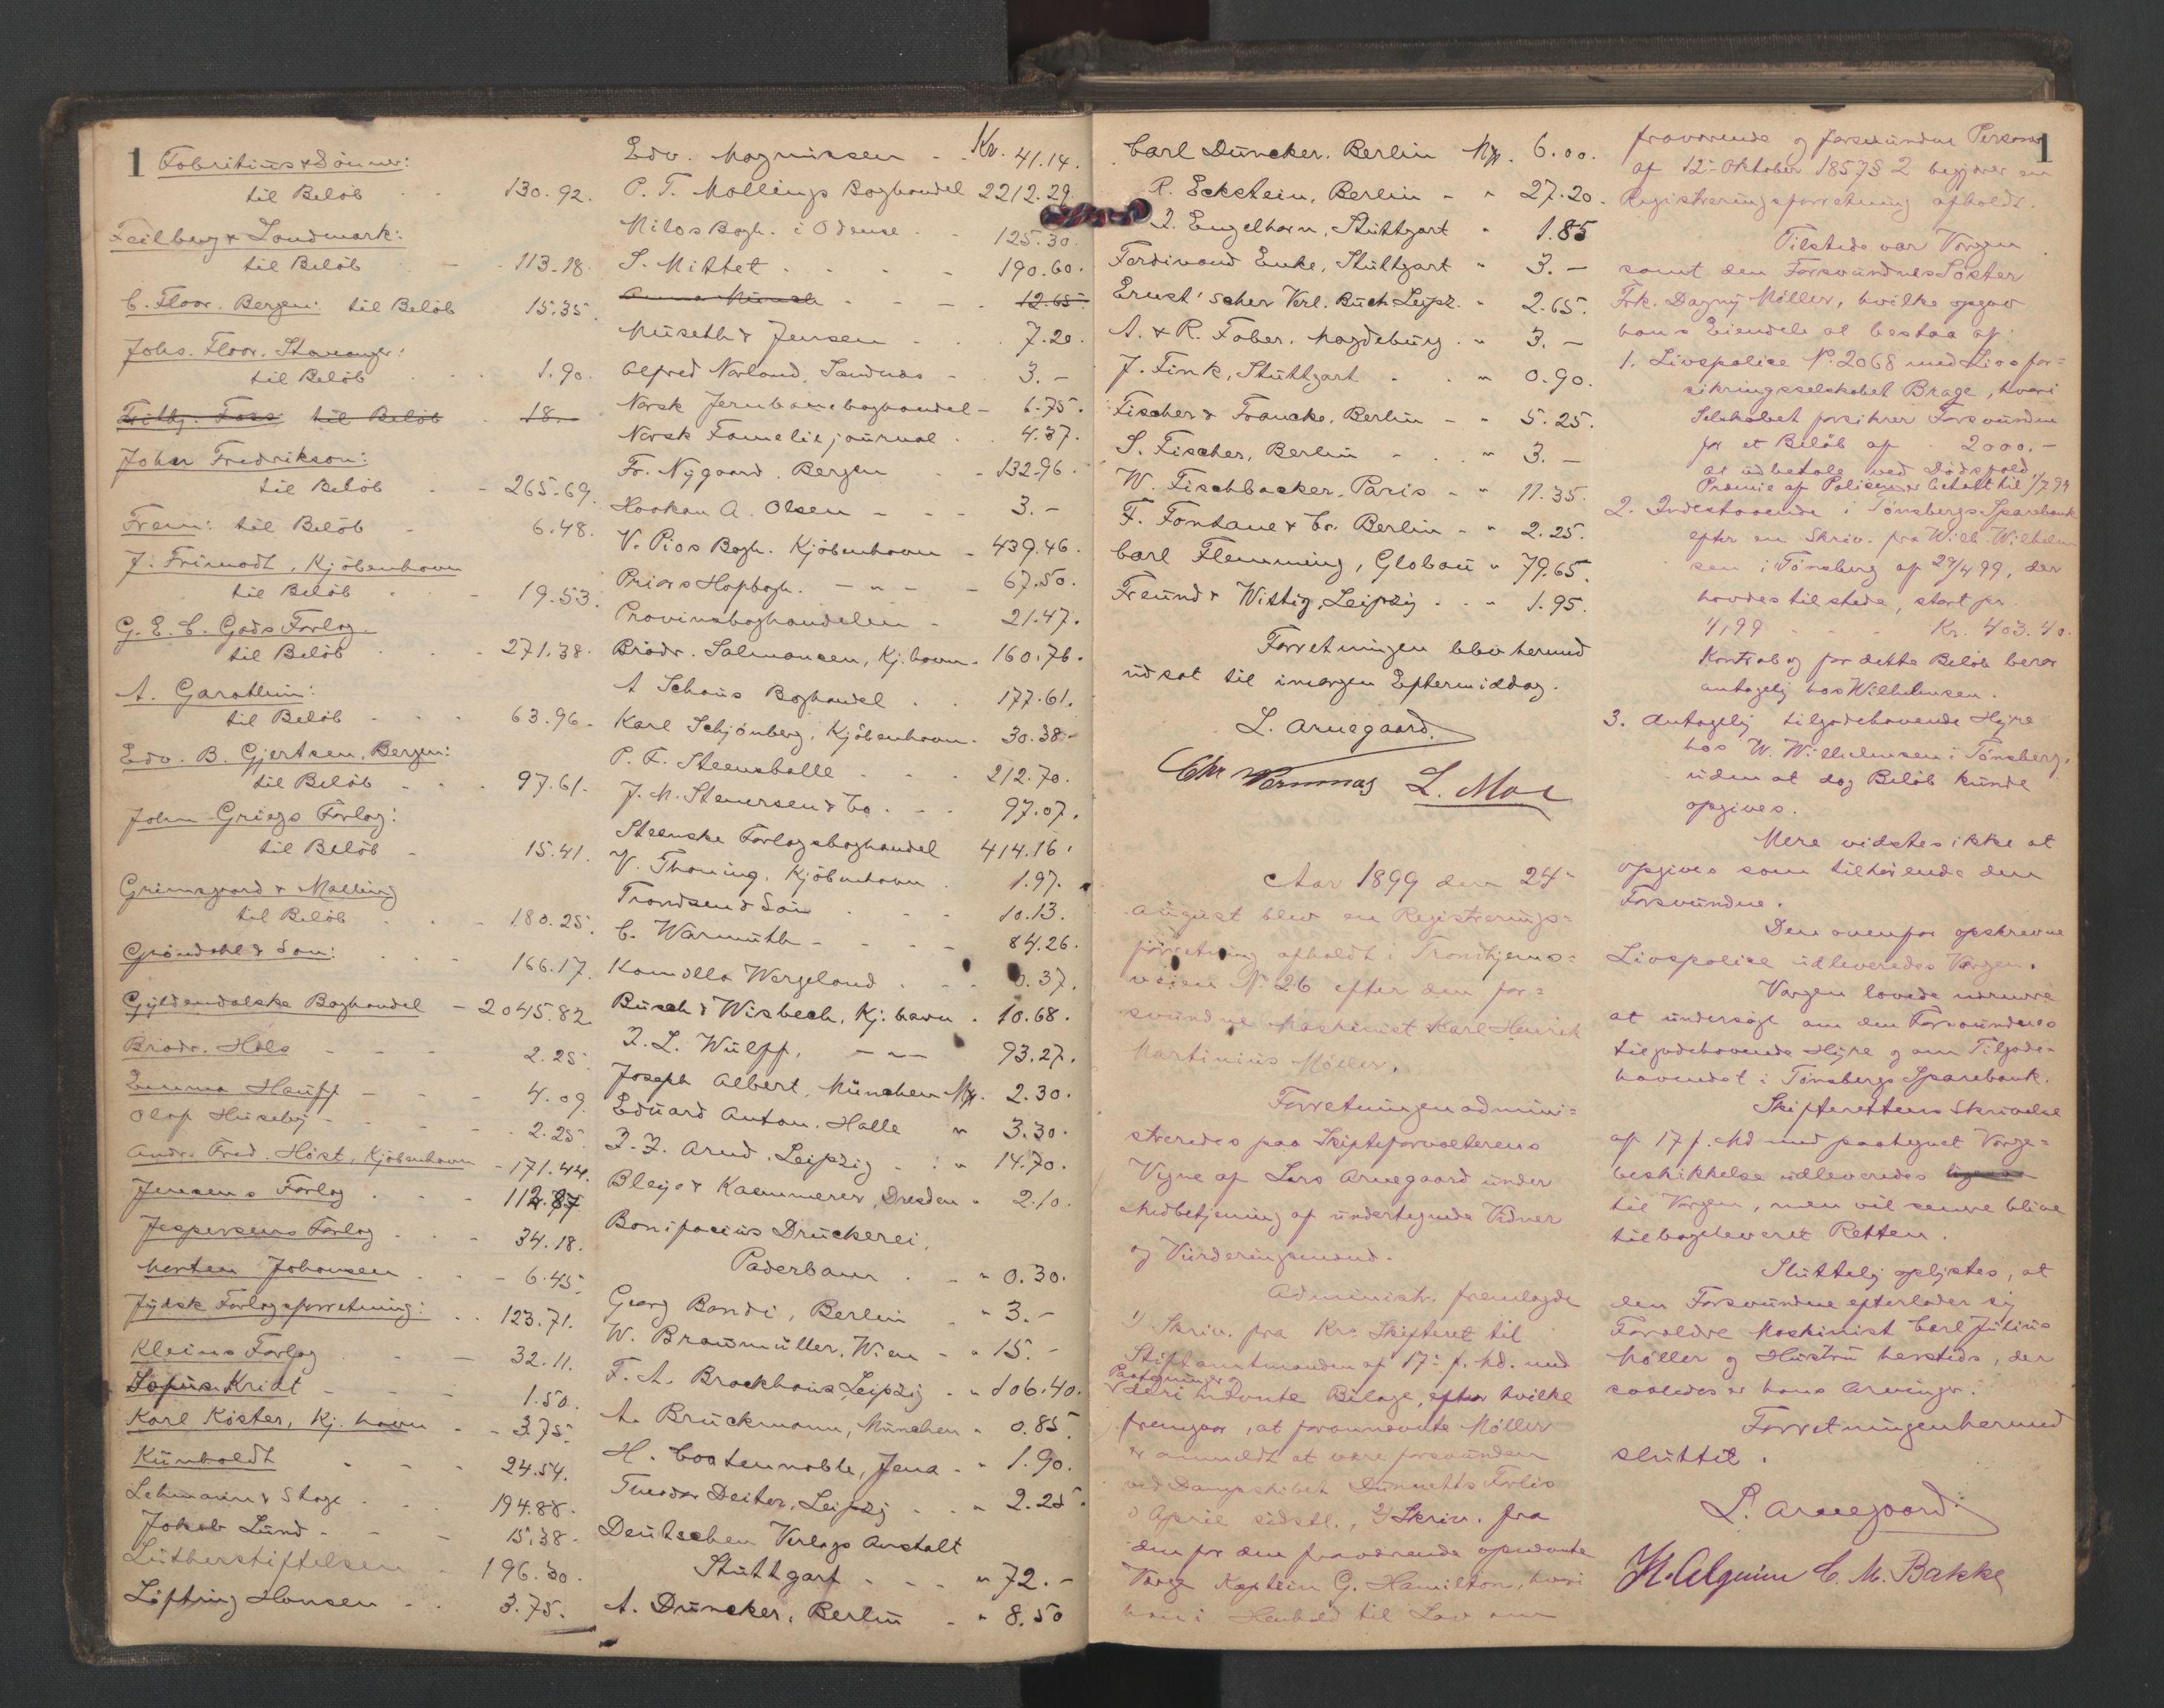 1
Fabritius & Sönner:
til Belöb - - 130.92.
Feilberg & Landmark:
til Belöb - - 113.18.
C. Floor. Bergen: til Belöb 15.35.
Johs. Floor. Stavanger:
til Belöb - - 1.90.
Frithj. Foss til Belöb - 18.-
Johan Fredrikson:
til Belöb - - 265.69.
Frem: til Belöb - 6.48.
J. Frimodt, Kjöbenhavn
til Belöb - - 19.53.
G. E. C. Gads Forlag.
til Belöb - - 271.38.
A. Garathun:
til Belöb - - - 63.96.
Edv. B. Gjertsen, Bergen:
til Belöb - - - 97.61.
John Griegs Forlag:
til Belöb - 15.41.
Grimsgaard & Malling
til Belöb - - - 180.25.
Gröndahl & Sön: - - - 166.17.
Gyldendalske Boghandel - 2045.82
Brödr. Hals - - - 2.25.
Emma Hauff - - - 4.09.
Olaf Huseby - - - - 2.25
Andr. Fred. Höst, Kjöbenhavn - 171.44.
Jensens Forlag - - - 112.87
Jespersens Forlag - - - 34.18.
Morten Johansen - - - 6.45.
Jydsk Forlagsforretning: - - 123.71.
Kleins Forlag - - - 32.11.
Sofus Kridt - - - 1.50.
Karl Köster, Kj. havn - - 3.75.
Künholdt - - - 24.54.
Lehmann & Stage - - - 194.88.
Jakob Lund - - - 15.38.
Lutherstiftelsen - 196.30.
Löftring Hansen - - 3.75.
Edv. Magnussen - - Kr. 41.14.
P. T. Mallings Boghandel 2212.29.
Milos Bogh. i Odense - - 125.30.
S. Mittet - - - - 190.60.
Anna Münch - - - - 12.65.
Museth & Jensen - - - 7.20.
Alfred Norland, Sandnes - - 3.-
Norsk Jernbaneboghandel - 6.75.
Norsk Familiejournal - - 4.37.
Fr. Nygaard. Bergen - - 132.96.
Haakon A. Olsen - - - 3.-
V. Pios Bogh. Kjöbenhavn - 439.46.
Priors Hofbogh. - " - - 67.50.
Provinsboghandelen - 21.47.
Brödr. Salmonsen, Kj. havn - 160.76.
A Schous Boghandel - - 177.61.
Karl Schjönberg, Kjöbenhavn - 30.38.
P. F. Steensballe - - - 212.70.
J. M. Stenersen & Co. - - 97.07.
Steenske Forlagsboghandel 414.16.
V. Thaning, Kjöbenhavn - 1.97.
Trondsen & Sön - - - 10.13.
C. Warmuth - - - - 84.26.
Kamilla Wergeland - - - 0.37.
Busch & Wisbech, Kj. havn - 10.68.
I. L. Wulff, - " - 93.27.
Joseph Albert, München Mk. 2.30.
Eduard Anton, Halle " 3.30.
I. I. Arnd, Leipzig - - " 14.70.
Bleyl & Kaemmerer, Dresden " 2.10.
Bonifacius Druckerei,
Paderborn - - " 0.30.
Georg Bondi, Berlin - " 3.-
W. Braumüller, Wien - " 15.-
F. A. Brockhaus Leipzig - " 106.40.
A. Bruckmann, München " 0.85.
H. Costennoble, Jena - " 1.90.
Theodor Deiter, Leipzig - - " 2.25.
Deutschen Verlags Anstalt
Stuttgart - - - " 72.-
A. Duncker, Berlin - " 8.50
Carl Duncker, Berlin Mk. 6.00.
R. Eckstein, Berlin - " 27.20.
I. Engelhorn, Stuttgart " 1.85
Ferdinand Enke, Stuttgart " 3.-
Ernst'scher Verl. Buch Leipz. " 2.65.
A. & R. Faber. Magdeburg - " 3.-
J. Fink, Stuttgart - - " 0.90.
Fischer & Francke, Berlin - " 5.25.
S. Fischer, Berlin - - " 3.-
W. Fischbacker, Paris - " 11.35.
F. Fontane & Co. Berlin - " 2.25.
Carl Flemming, Globau " 79.65.
Freund & Wittig, Leipzig - - " 1.95.
Forretningen blev hermed
udsat til imorgen Eftermiddag.
L. Arnegaard.
Chr L. Moe
Aar 1899 den 24-
August blev en Registrerings=
forretning afholdt i Trondhjems=
veien No 26 efter den for=
svundne Maskinist Karl Henrik
Martinius Möller.
Forretningen admini=
streredes paa Skifteforvalterens
Vegne af Lars Arnegaard under
Medbetjening af undertegnede Vidner
og Vurderingsmænd.
Administr. fremlagde
1) Skriv. fra Kra Skifteret til
Stiftamtmanden af 17- f. Md. med
Paategninger og
deri nævnte Bilage, efter hvilke
fremgaar, at forannævnte Möller
er anmeldt at være forsvunden
ved Dampskibet Forlis
i April sidstl., 2) Skriv. fra
den for den fraværende opnævnte
Værge Kaptein G. Hamilton, hvori
han i Henhold til Lov om
1
fraværende og forsvundne Personer
af 12- Oktober 1857 § 2 begjærer en
Registreringsforretning afholdt.
Tilstede var Værgen
samt den Forsvundnes Söster
Frk. Dagny Möller, hvilke opgav
hans Eiendele at bestaa af:
1. Livspolice No 2068 med Livsfor=
sikringsselskabet Brage, hvori
Selskabet forsikrer Forsvundne
for et Belöb af - 2000.-
at udbetale ved Dödsfald.
Præmie af Policen er betalt til 1/7 99
2. Indestaaende i Tönsbergs Sparebank
efter en Skriv. fra Wilh. Wilhelm
sen i Tönsberg af 27/4 99, der
havdes tilstede, stort pr.
1/1 99 - - - Kr. 403.40.
Kontrabog for dette Belöb beror
antagelig hos Wilhelmsen.
3. Antagelig tilgodehavende Hyre
hos W. Wilhelmsen i Tönsberg,
uden at dog Belöb kunde
opgives.
Mere vidstes ikke at
opgives som tilhörende den
Forsvundne.
Den ovenfor opskrevne
Livspolice udleveredes Værgen.
Værgen lovede nærmere
at undersöge om den Forsvundnes
tilgodehavende Hyre og om Tilgode-
havendet i Tönsbergs Sparebank.
Skifterettens Skrivelse
af 17 f. Md med paategnet Værge=
beskikkelse udleveredes
til Værgen, men vil senere blive
tilbageleveret Retten.
Sluttelig oplystes, at
den Forsvundne efterlader sig
Forældre Maskinist Carl Julius
Möller og Hustru hersteds, der
saaledes er hans Arvinger.
Forretningen hermed
sluttet.
L. Arnegaard.
C. M. Bakke